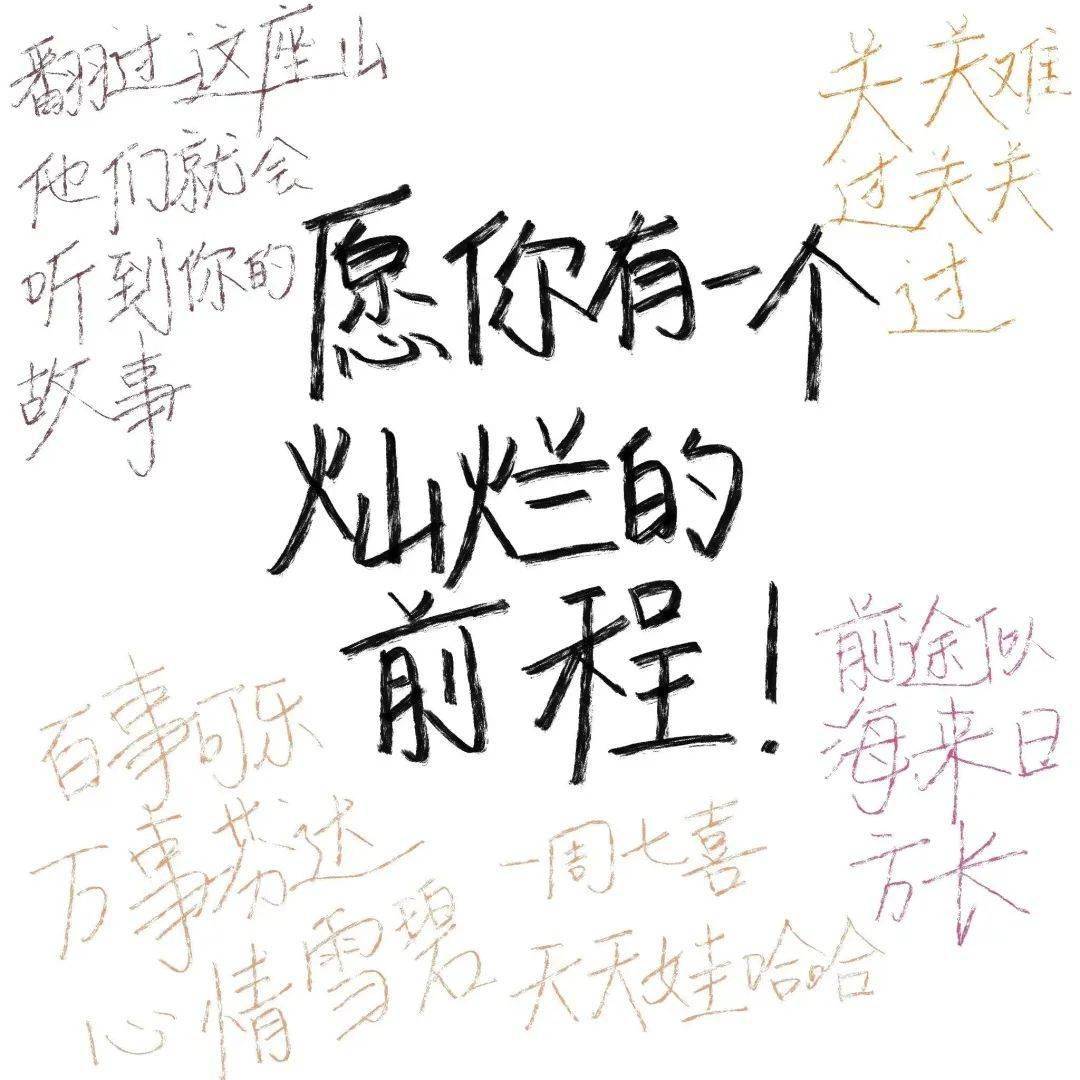 翻过这座山
他们就会
听到你的
故事
关关难
过关关
过
愿你有一个
灿烂的
前程！
前途似
海来日
方长
百事可乐
万事芬达
心情雪碧
一周七喜
天天娃哈哈